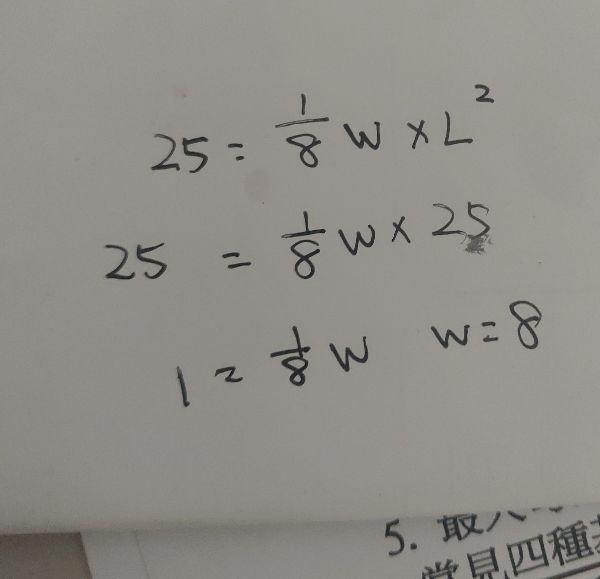 25 = 1/8 W × L²
25 = 1/8 W × 25
1 = 1/8 W W = 8
5. 最大
常見四種